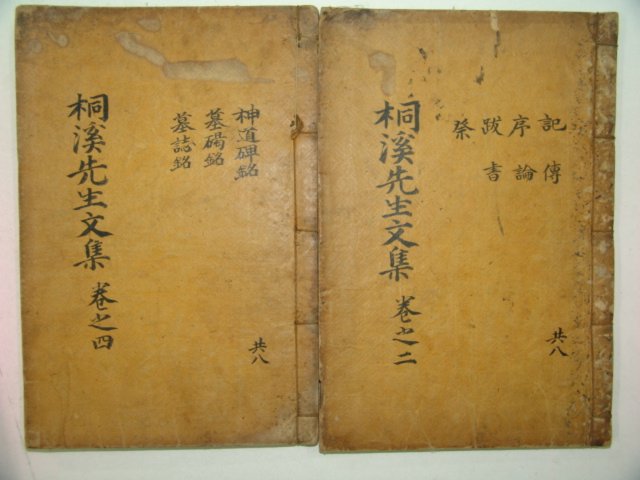 記傳
序論
跋書
祭
桐溪先生文集 卷之二
共八
神道碑銘
墓碣銘
墓誌銘
桐溪先生文集 卷之四
共八